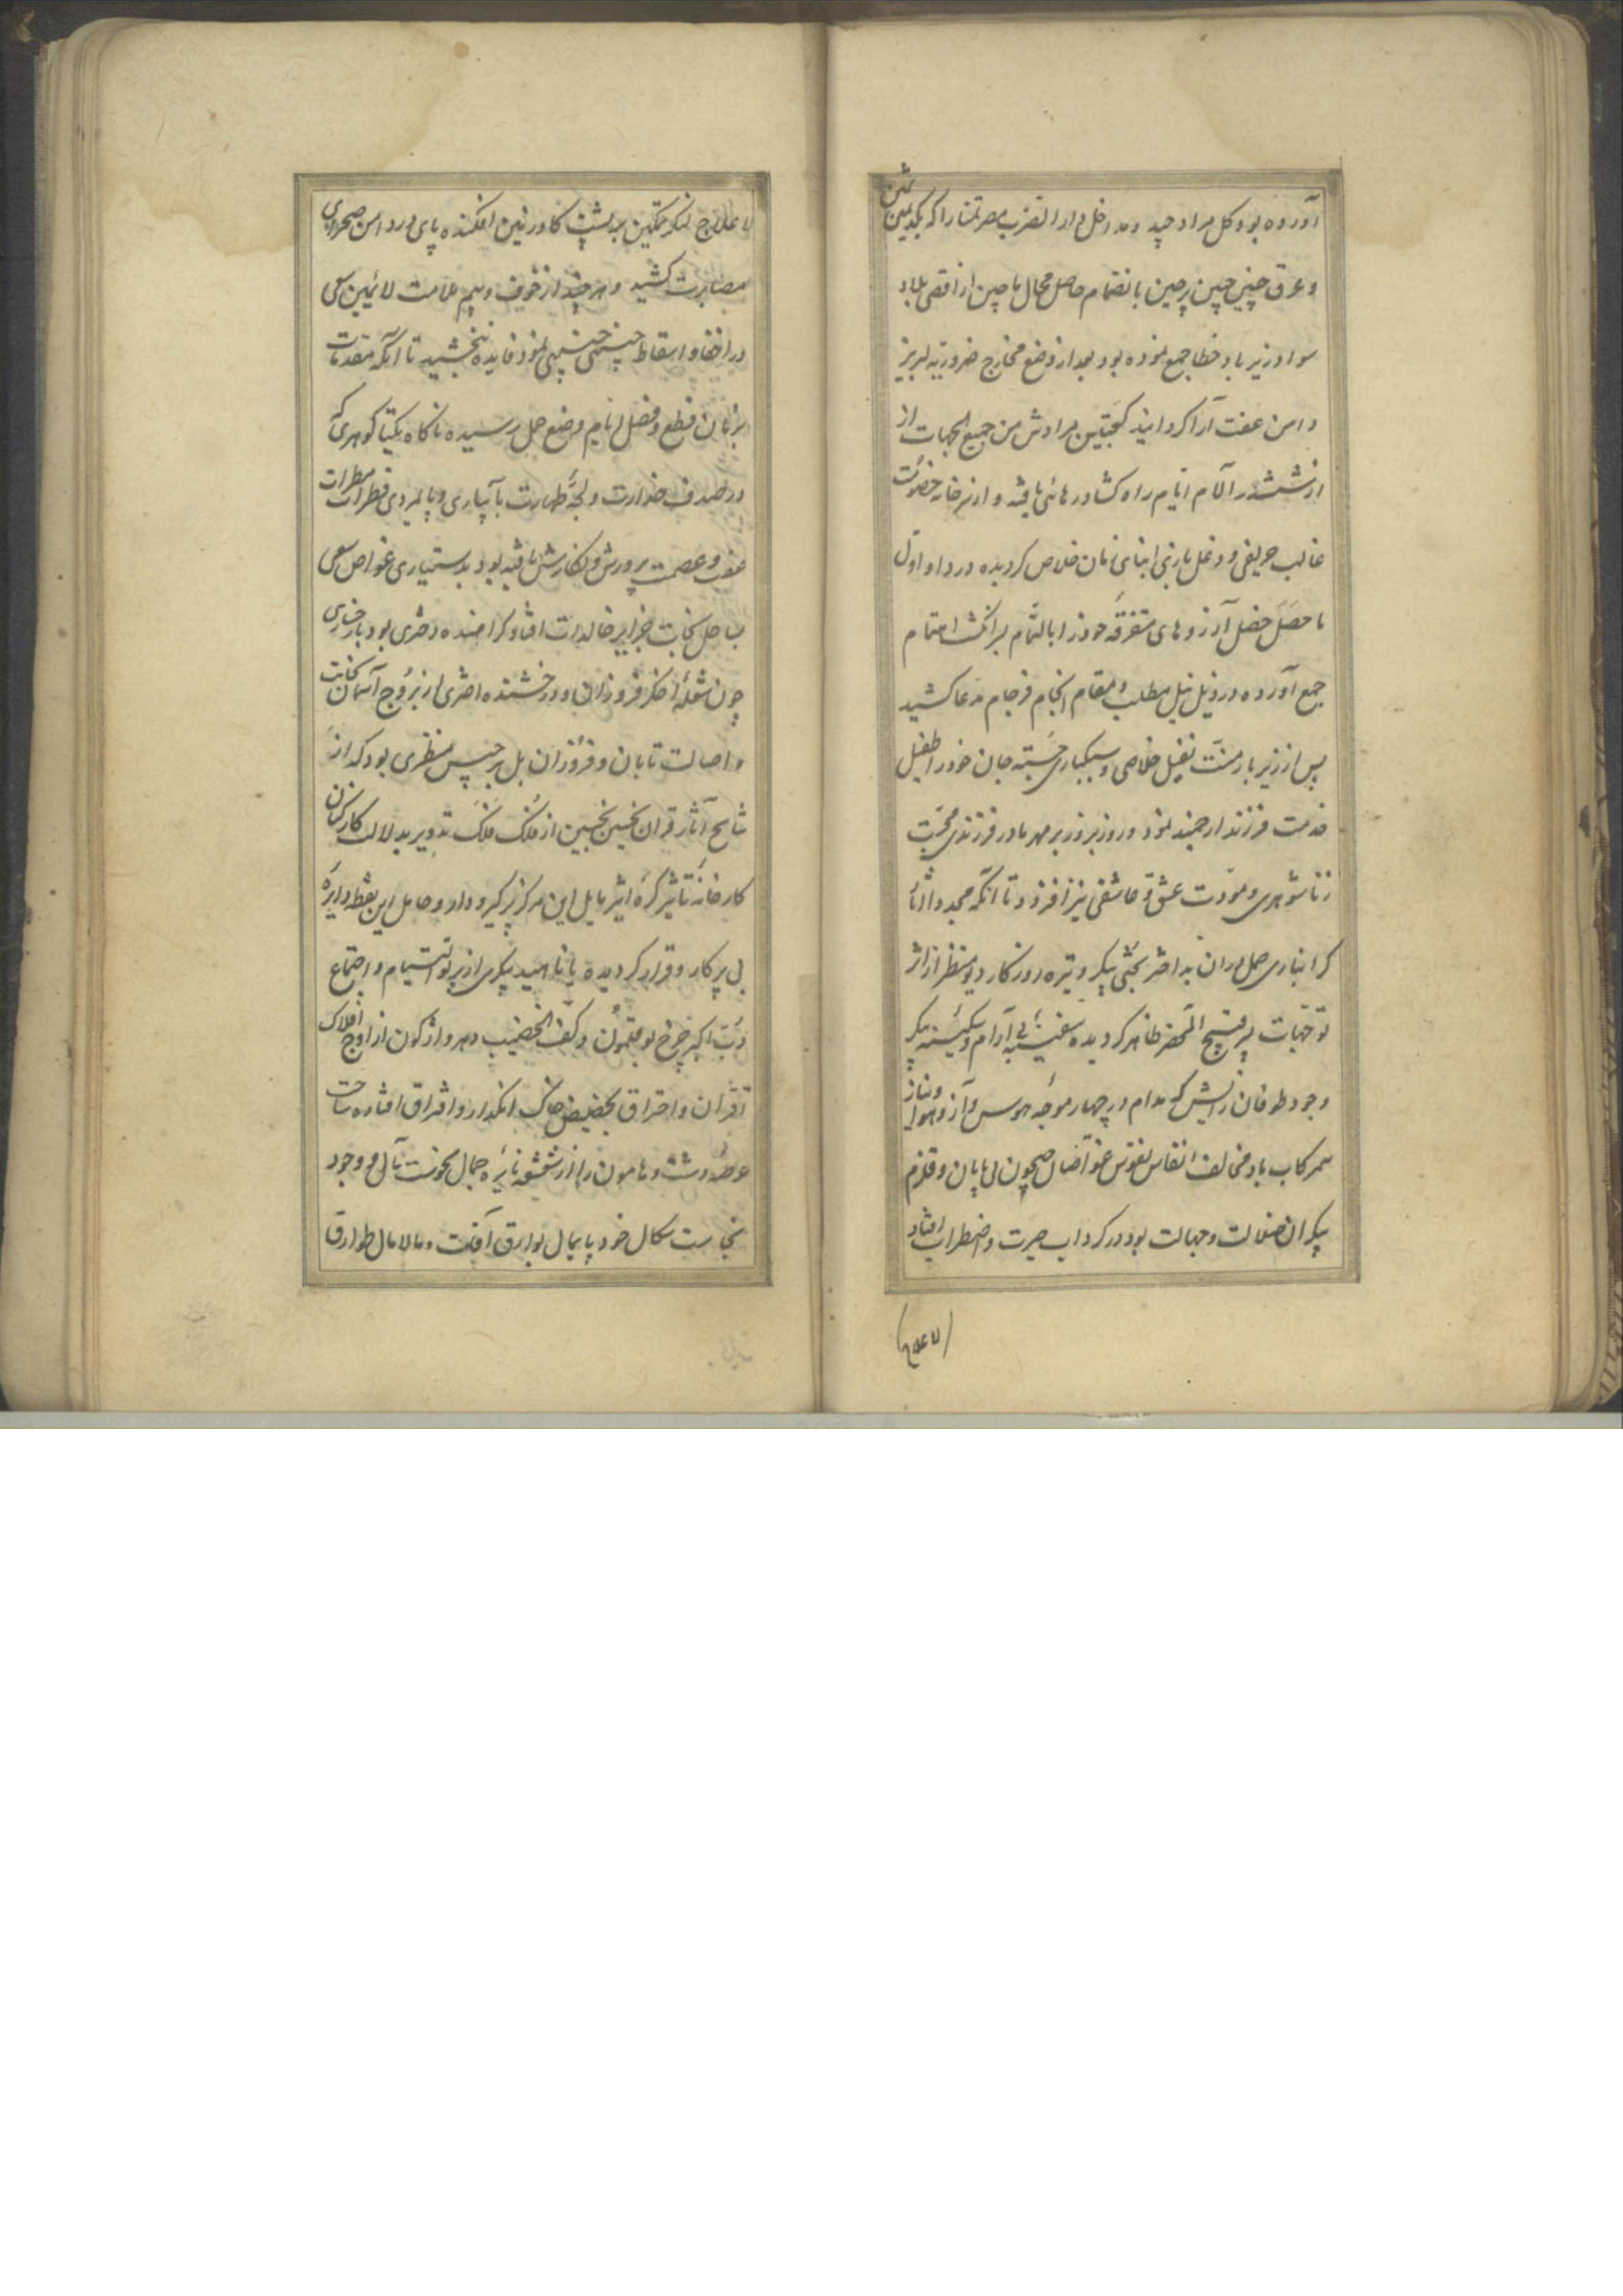 آورده بود و کل مراد چید و مداخل دار الضرب مصر تمنا را که بکد یمین
و عرق جبین چین پرچین بانضمام حاصل محال ماچین از اقصی بلاد
سواد زیر باد خطا جمع نموده بود بعد از وضع مخارج ضروریه لبریز
دامن عفت آرا کردانید کعبتین مرادش من جمیع الجهات از
از ششدر آلام ایام راه کشاد رهائی یافته و از نرد خانه خصومت
غالب حریفی و دغل بازی ابنای زمان خلاص کردیده در داو اول
ماحصل خصل آرزوهای متفرقه خود را بالتمام بر انکشت اهتمام
جمع آورده در ذیل نیل مطلب و مقام انجام فرجام مدعا کشید
پس از زیر بار منت ثقیل خلاصی و سبکباری جسته جان خود را طفیل
خدمت فرزند ارجمند نمود و روز بروز بر مهر مادر فرزندی محبت
زناشوهری و مودت عشق و عاشقی نیز افزود تا آنکه مجددا آثار
کرانباری حمل دران بد اختر بختی پیکر و تیره روزکار دیو منظر از اثر
توجهات پدر قبیح المحضر ظاهر کردیده سفینه بی آرام و سکینه پیکر
وجود طوفان زایش که مدام در چهار موجه هوس و آز و هوا و نیاز
همرکاب باد مخالف انفاس نفوس غواصان جیحون بی پایان و قلزم
بیکران ضلالت و جهالت بود در کرداب حیرت و اضطراب افتاد
لاعلاج لنکر تمکین بر پشت کاو زمین افکنده پای در دامن صحرای
مصابرت کشید و هر چند از خوف و بیم ملامت لائمین سعی
در اخفا و اسقاط جنین نمود فایده نبخشید تا آنکه مقدمات
زمان قطع و فصل ایام وضع حمل رسیده ناکاه یکتا کوهری که
در صدف خدارت و لجه طهارت بآبیاری و پایمردی قطرات مطرات
عفت و عصمت پرورش و نکارش یافته بود بدستیاری غواص سعی
بساحل نجات جزایر خالدات افتاد کرامنده دختری بود با رخساری
چون شعله اخکر فروزان و درخشنده اختری از بروج آسمان نجابت
و اصالت تابان و فروزان بل برجیس منظری بود که از
نتایج آثار قران نحسین از فلک تدویر بدلالت کارکنان
کارخانه تأثیر کره اثیر مایل این مرکز پر کیر و دار و حامل این نقطه دایره
بی پرکار و قرار کردیده یا ناهید پیکری از پرتو التیام و اجتماع
دب اکبر چرخ بوقلمون و کف الخضیب دهر واژکون از اوج افلاک
اقتران و احتراق بحضیض خاک انکدار و افتراق افتاده ساحت
عرصه دشت و هامون را از شعشعه نایره جمال نحوست مآل و وجود
نجاست نکال خود پایمال بوارق آفت و مالامال طوارق